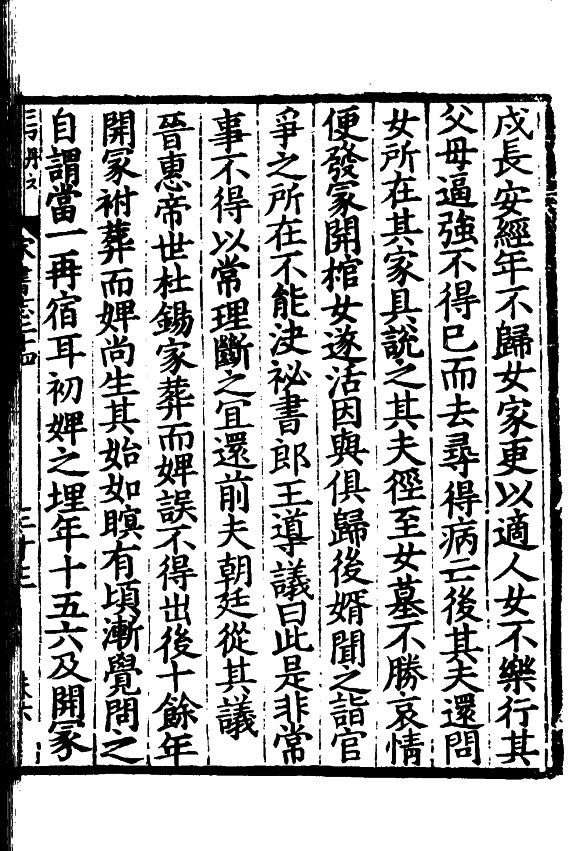 戍長安經年不歸女家更以適人女不樂行其
父母逼強不得巳而去尋得病亡後其夫還問
女所在其家具說之其夫徑至女墓不勝哀情
便發冢開棺女遂活因與俱歸後婿聞之詣官
爭之所在不能決祕書郎王導議曰此是非常
事不得以常理斷之宜還前夫朝廷從其議
晉惠帝世杜錫家葬而婢誤不得出後十餘年
開冢祔葬而婢尚生其始如瞑有頃漸覺問之
自謂當一再宿耳初婢之埋年十五六及開冢
宋書志二十四
二十三